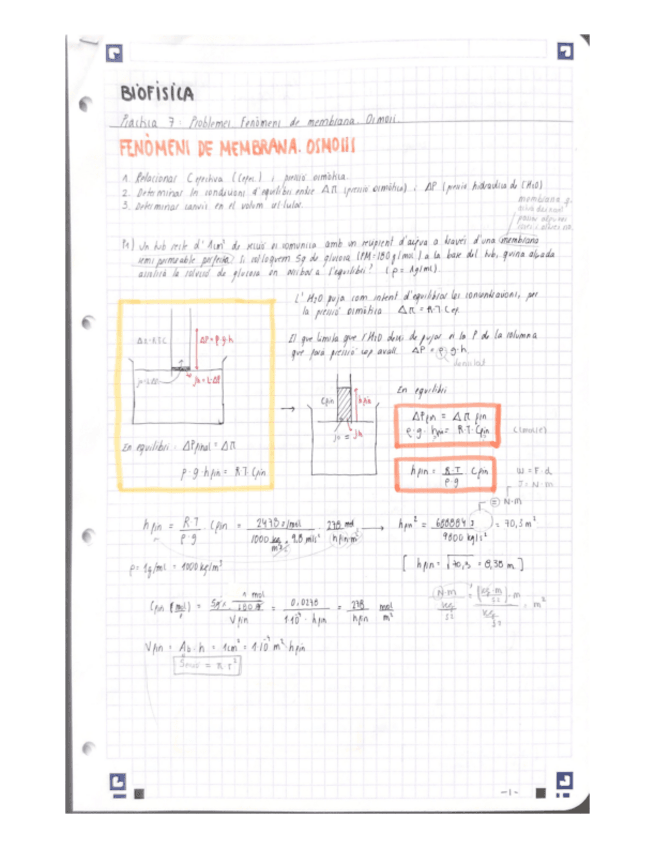 BIOFÍSICA
Pràctica 7: Problemes Fenòmeni de membrana. Osmosi.
FENÒMENI DE MEMBRANA. OSMOSII
1. Relacionar C efectiva (Cefec.) i pressió osmòtica.
2. Determinar les condicions d'equilibri entre Δπ (pressió osmòtica) i ΔP (pressió hidràulica de l'H2O)
3. Determinar canvis en el volum cel·lular.
membrana
P1) Un tub recte d'1cm² de secció es comunica amb un recipient d'aigua a través d'una membrana
semipermeable perfecta. Si col·loquem 5g de glucosa (PM=180 g/mol) a la base del tub, quina alçada
assolirà la solució de glucosa en arribar a l'equilibri? (ρ = 1g/ml).
L'H2O puja com intent d'equilibrar les concentracions, per
la pressió osmòtica Δπ = R·T·Cep.
El que limita que l'H2O deixi de pujar és la P de la columna
que farà pressió cap avall. ΔP = ρ·g·h
densitat
ΔP = ρ·g·h
Cfin
hfin
En equilibri
ΔPfin = Δπ fin
ρ·g·hfin = R·T·Cfin
hfin = R·T / ρ·g · Cfin
W = F·d
J = N·m
En equilibri: ΔPfinal = Δπ
ρ·g·hfin = R·T·Cfin
= N·m
hfin = R·T / ρ·g · Cfin = 2478 J/mol / 1000 kg/m³ · 9.8 m/s² · 278 mol / hfin m²
hfin² = 688884 J / 9800 kg/s² = 70,3 m²
ρ = 1g/ml = 1000 kg/m³
[ hfin = √70,3 = 8,38 m ]
Cfin (mol) = 5g · 1 mol / 180 g / Vfin = 0,0278 / 1·10⁻⁴ · hfin = 278 / hfin mol / m²
N·m / kg/s² = [kg·m/s²]·m / kg/s² = m²
Vfin = Ab·h = 1cm² = 1·10⁻⁴ m² · hfin
-1-